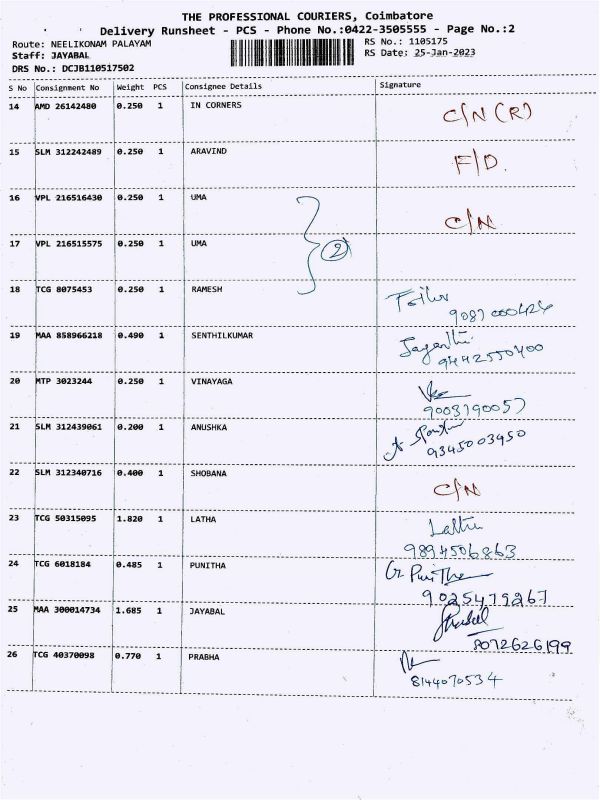 THE PROFESSIONAL COURIERS, Coimbatore
Delivery Runsheet - PCS - Phone No.:0422-3505555 - Page No.:2
Route: NEELIKONAM PALAYAM
RS No.: 1105175
Staff: JAYABAL
RS Date: 25-Jan-2023
DRS No.: DCJB110517502
S No Consignment No Weight PCS Consignee Details Signature
14 AMD 26142480 0.250 1 IN CORNERS C/N (R)
15 SLM 312242489 0.250 1 ARAVIND F/D.
16 VPL 216516430 0.250 1 UMA C/N
17 VPL 216515575 0.250 1 UMA
2
18 TCG 8075453 0.250 1 RAMESH
19 MAA 858966218 0.490 1 SENTHILKUMAR
9442550400
20 MTP 3023244 0.250 1 VINAYAGA
9003790057
21 SLM 312439061 0.200 1 ANUSHKA
9345003450
22 SLM 312340716 0.400 1 SHOBANA C/N
23 TCG 50315095 1.820 1 LATHA
9894506863
24 TCG 6018184 0.485 1 PUNITHA
9025479267
25 MAA 300014734 1.685 1 JAYABAL
8072626199
26 TCG 40370098 0.770 1 PRABHA
8144070534